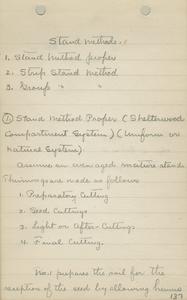 Stand Methods.
1. Stand Method proper
2. Strip Stand Method
3. Group " "
1. Stand Method Proper (Shelterwood
Compartment System) (Uniform or
Natural System).
Assume an even aged mature stand.
Thinnings are made as follows
1. Preparatory Cutting.
2. Seed Cutting.
3. Light or After-Cutting.
4. Final Cutting.
No. 1 prepares the soil for the
reception of the seed by allowing humus
137